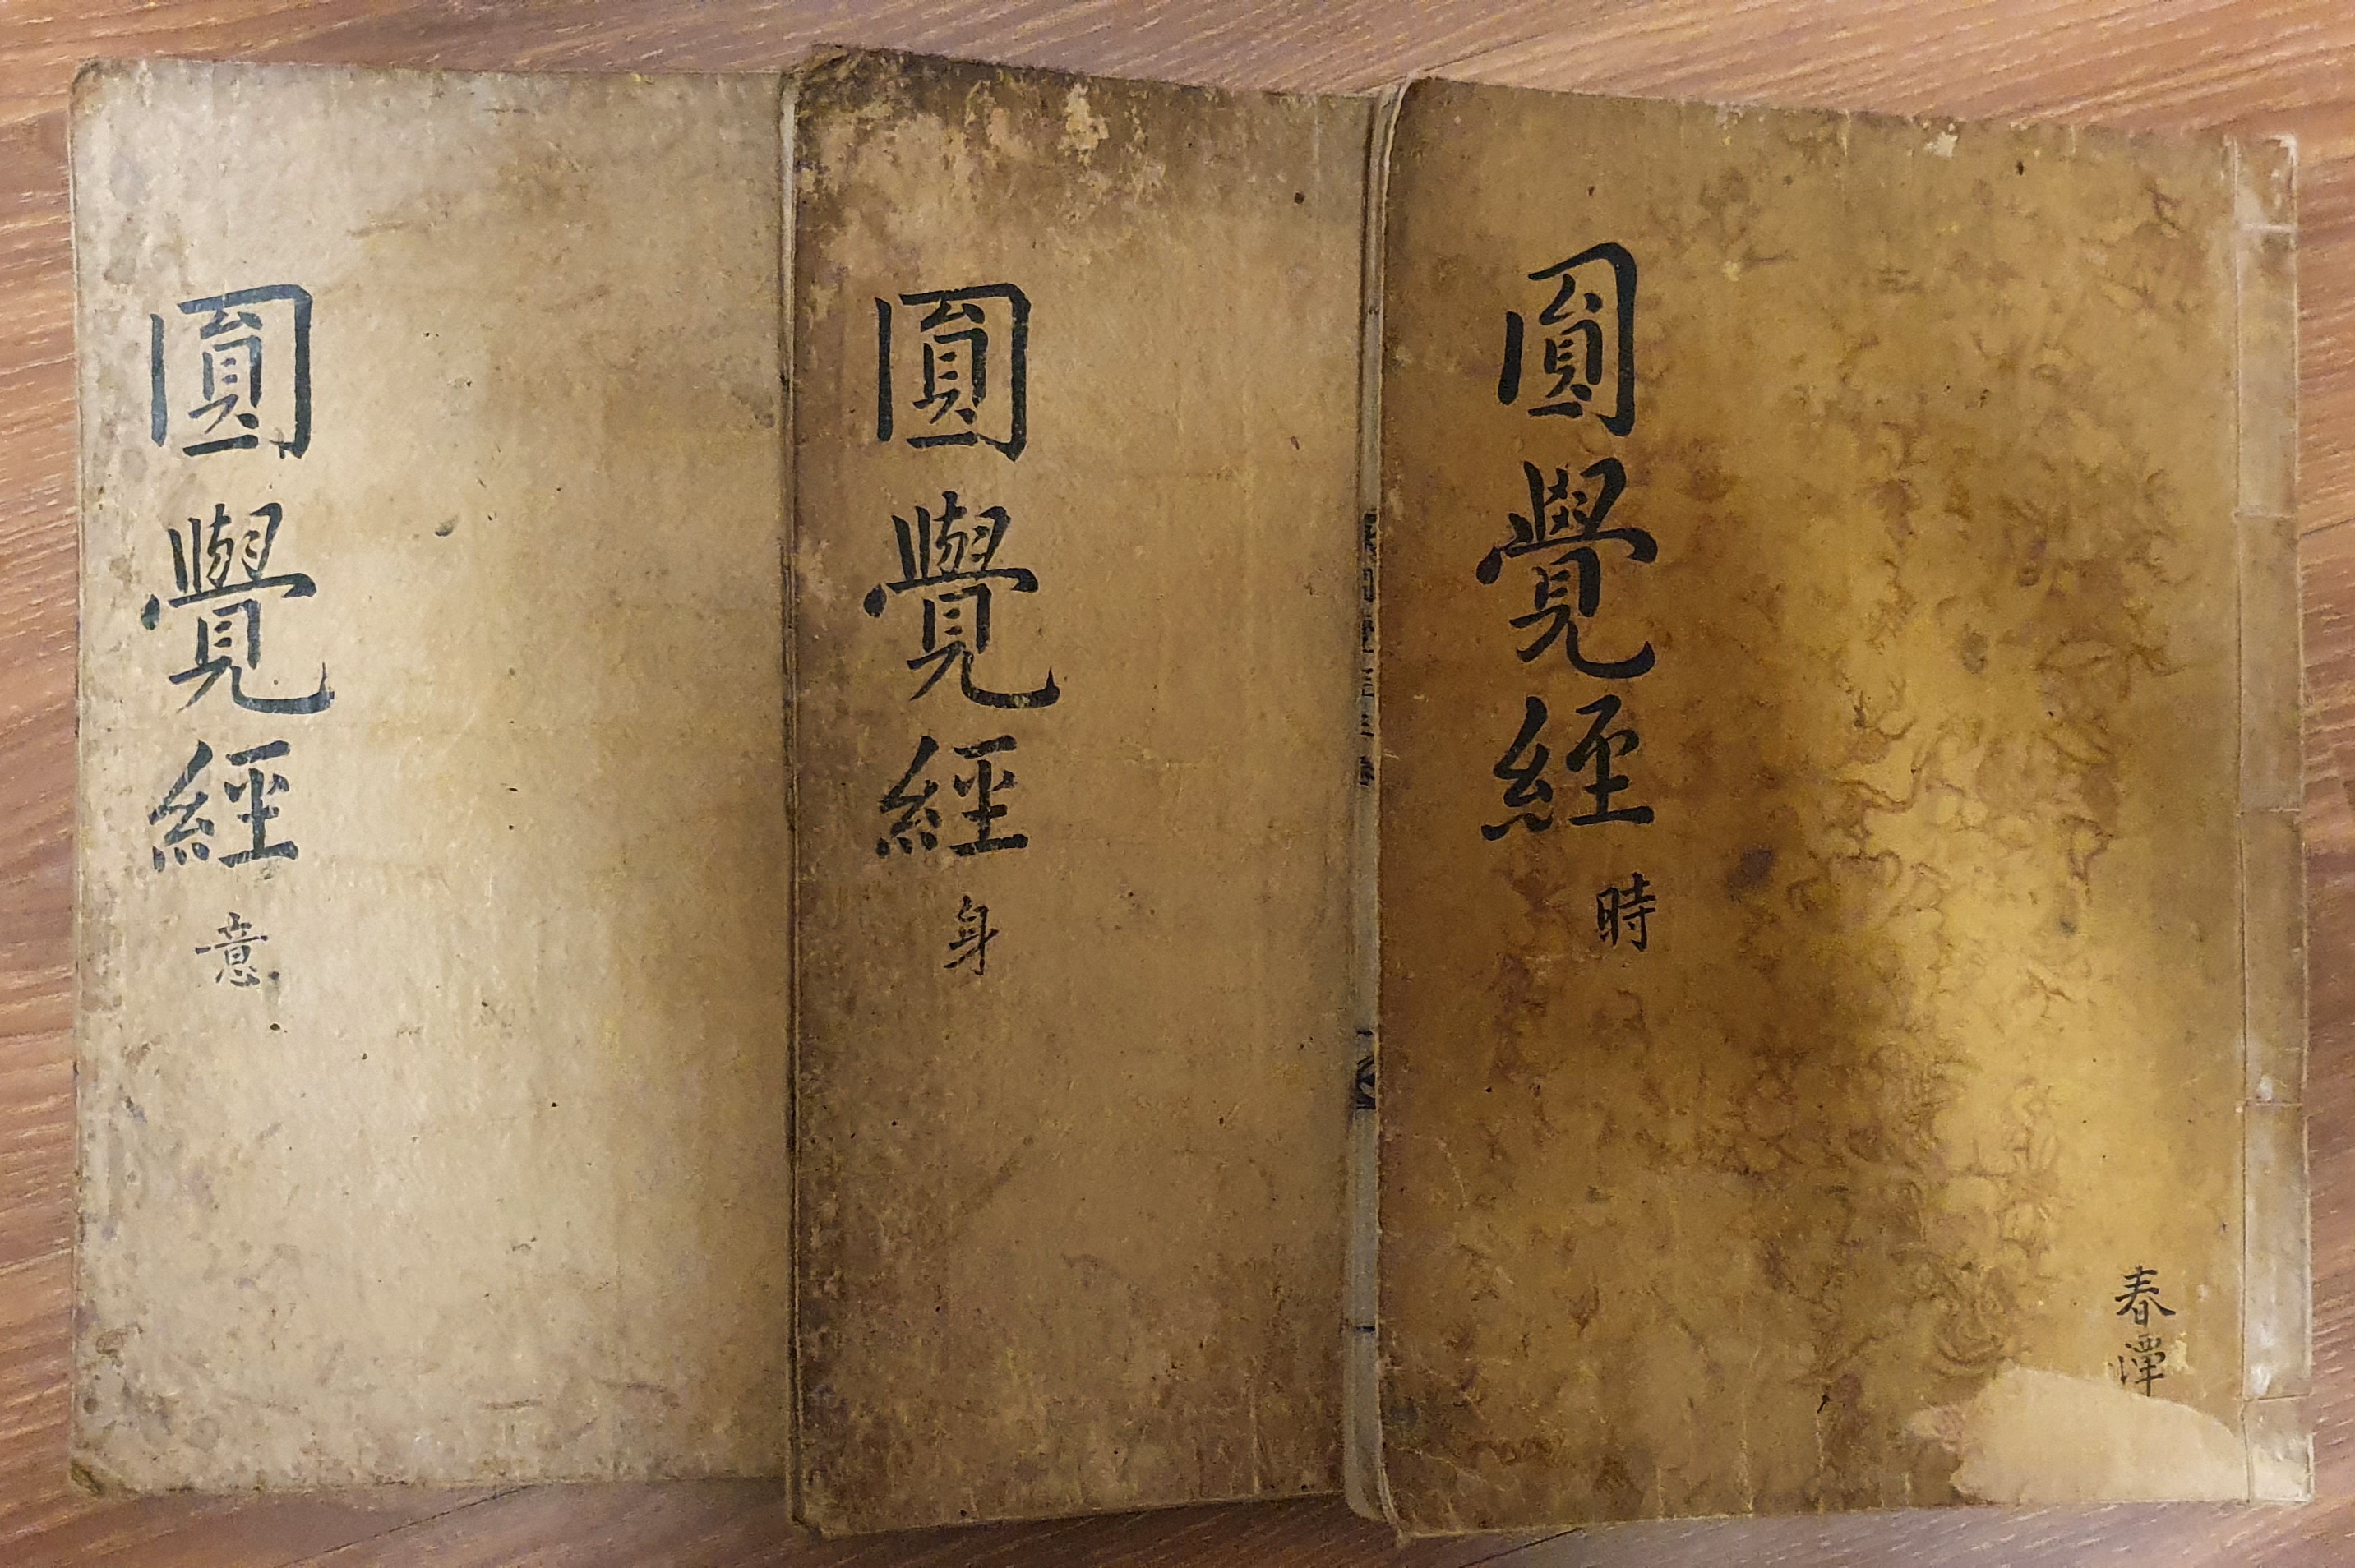 圓覺經
時
春潭
圓覺經
身
圓覺經
意